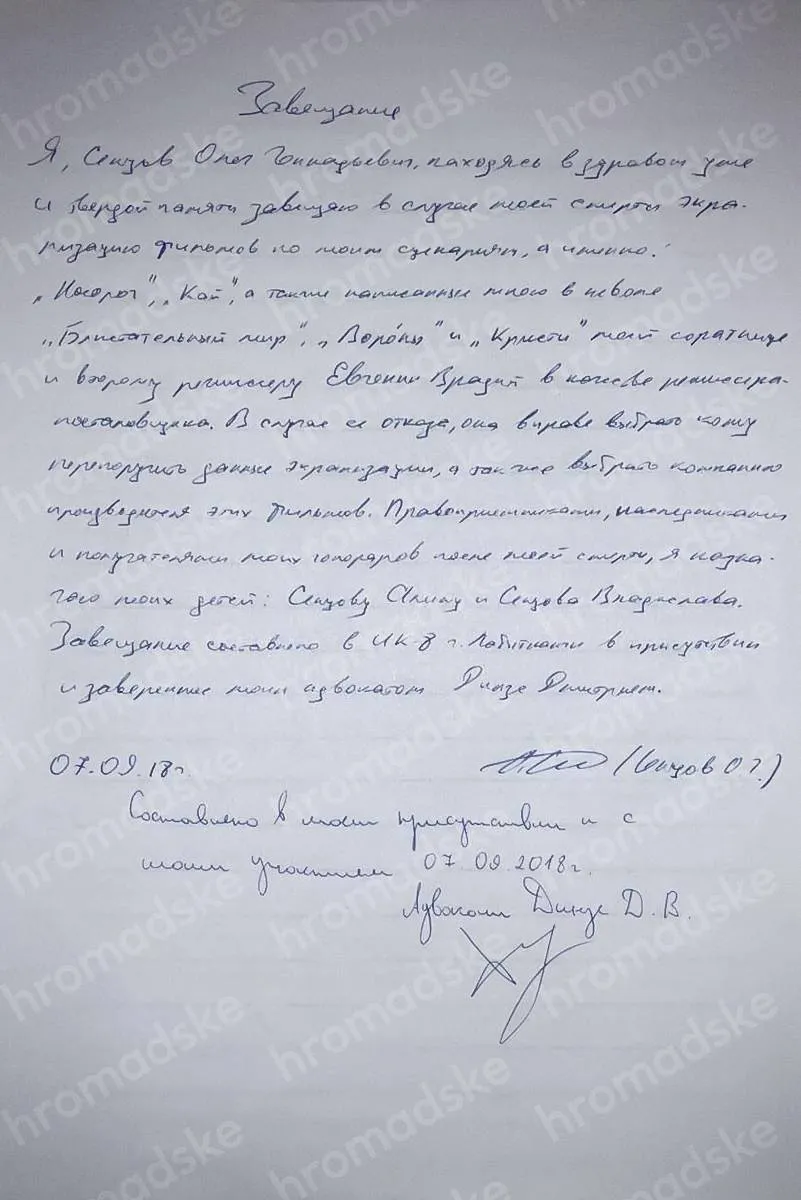 Завещание
Я, Сенцов Олег Геннадьевич, находясь в здравом уме
и твердой памяти завещаю в случае моей смерти экра-
низацию фильмов по моим сценариям, а именно:
„Носорог", „Кай", а также написанные мною в неволе
„Блистательный мир", „Воро́ны" и „Кристи" моей соратнице
и второму режиссеру Евгении Врадий в качестве режиссера-
постановщика. В случае ее отказа, она вправе выбрать кому
перепоручить данные экранизации, а также выбрать компанию
производителя этих фильмов. Правоприемниками, наследниками
и получателями моих гонораров после моей смерти, я назна-
чаю моих детей: Сенцову Алину и Сенцова Владислава.
Завещание составлено в ИК-8 г. Лабытнанги в присутствии
и заверенное моим адвокатом Динзе Дмитрием.
07.09.18г. (Сенцов О Г.)
Составлено в моем присутствии и с
моим участием 07.09.2018г.
Адвокат Динзе Д.В.
hromadske